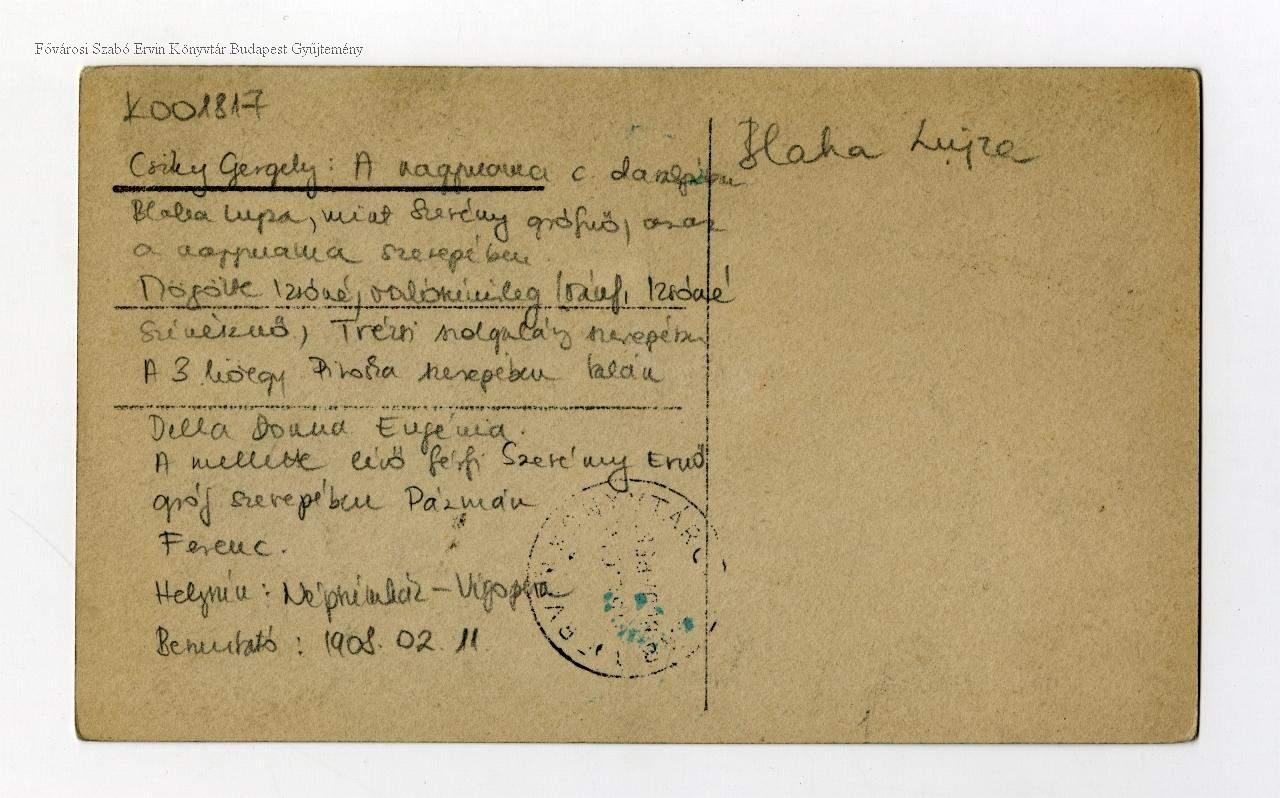 Fővárosi Szabó Ervin Könyvtár Budapest Gyűjtemény
K001817
Csiky Gergely: A nagymama c. darabjában
Blaha Lujza, mint Szerémy grófnő, azaz
a nagymama szerepében.
Mögötte Izsóné, valószínűleg Izsóné
Színésznő, Trézsi szolgáló szerepében
A 3 hölgy Piroska szerepében talán
Della Donna Eugénia.
A mellette lévő férfi Szerémy Ernő
gróf szerepében Pázmán
Ferenc.
Helyszín: Népszínház-Vígopera
Bemutató: 1908. 02. 11
Blaha Lujza
ERVIN KÖNYVTÁR